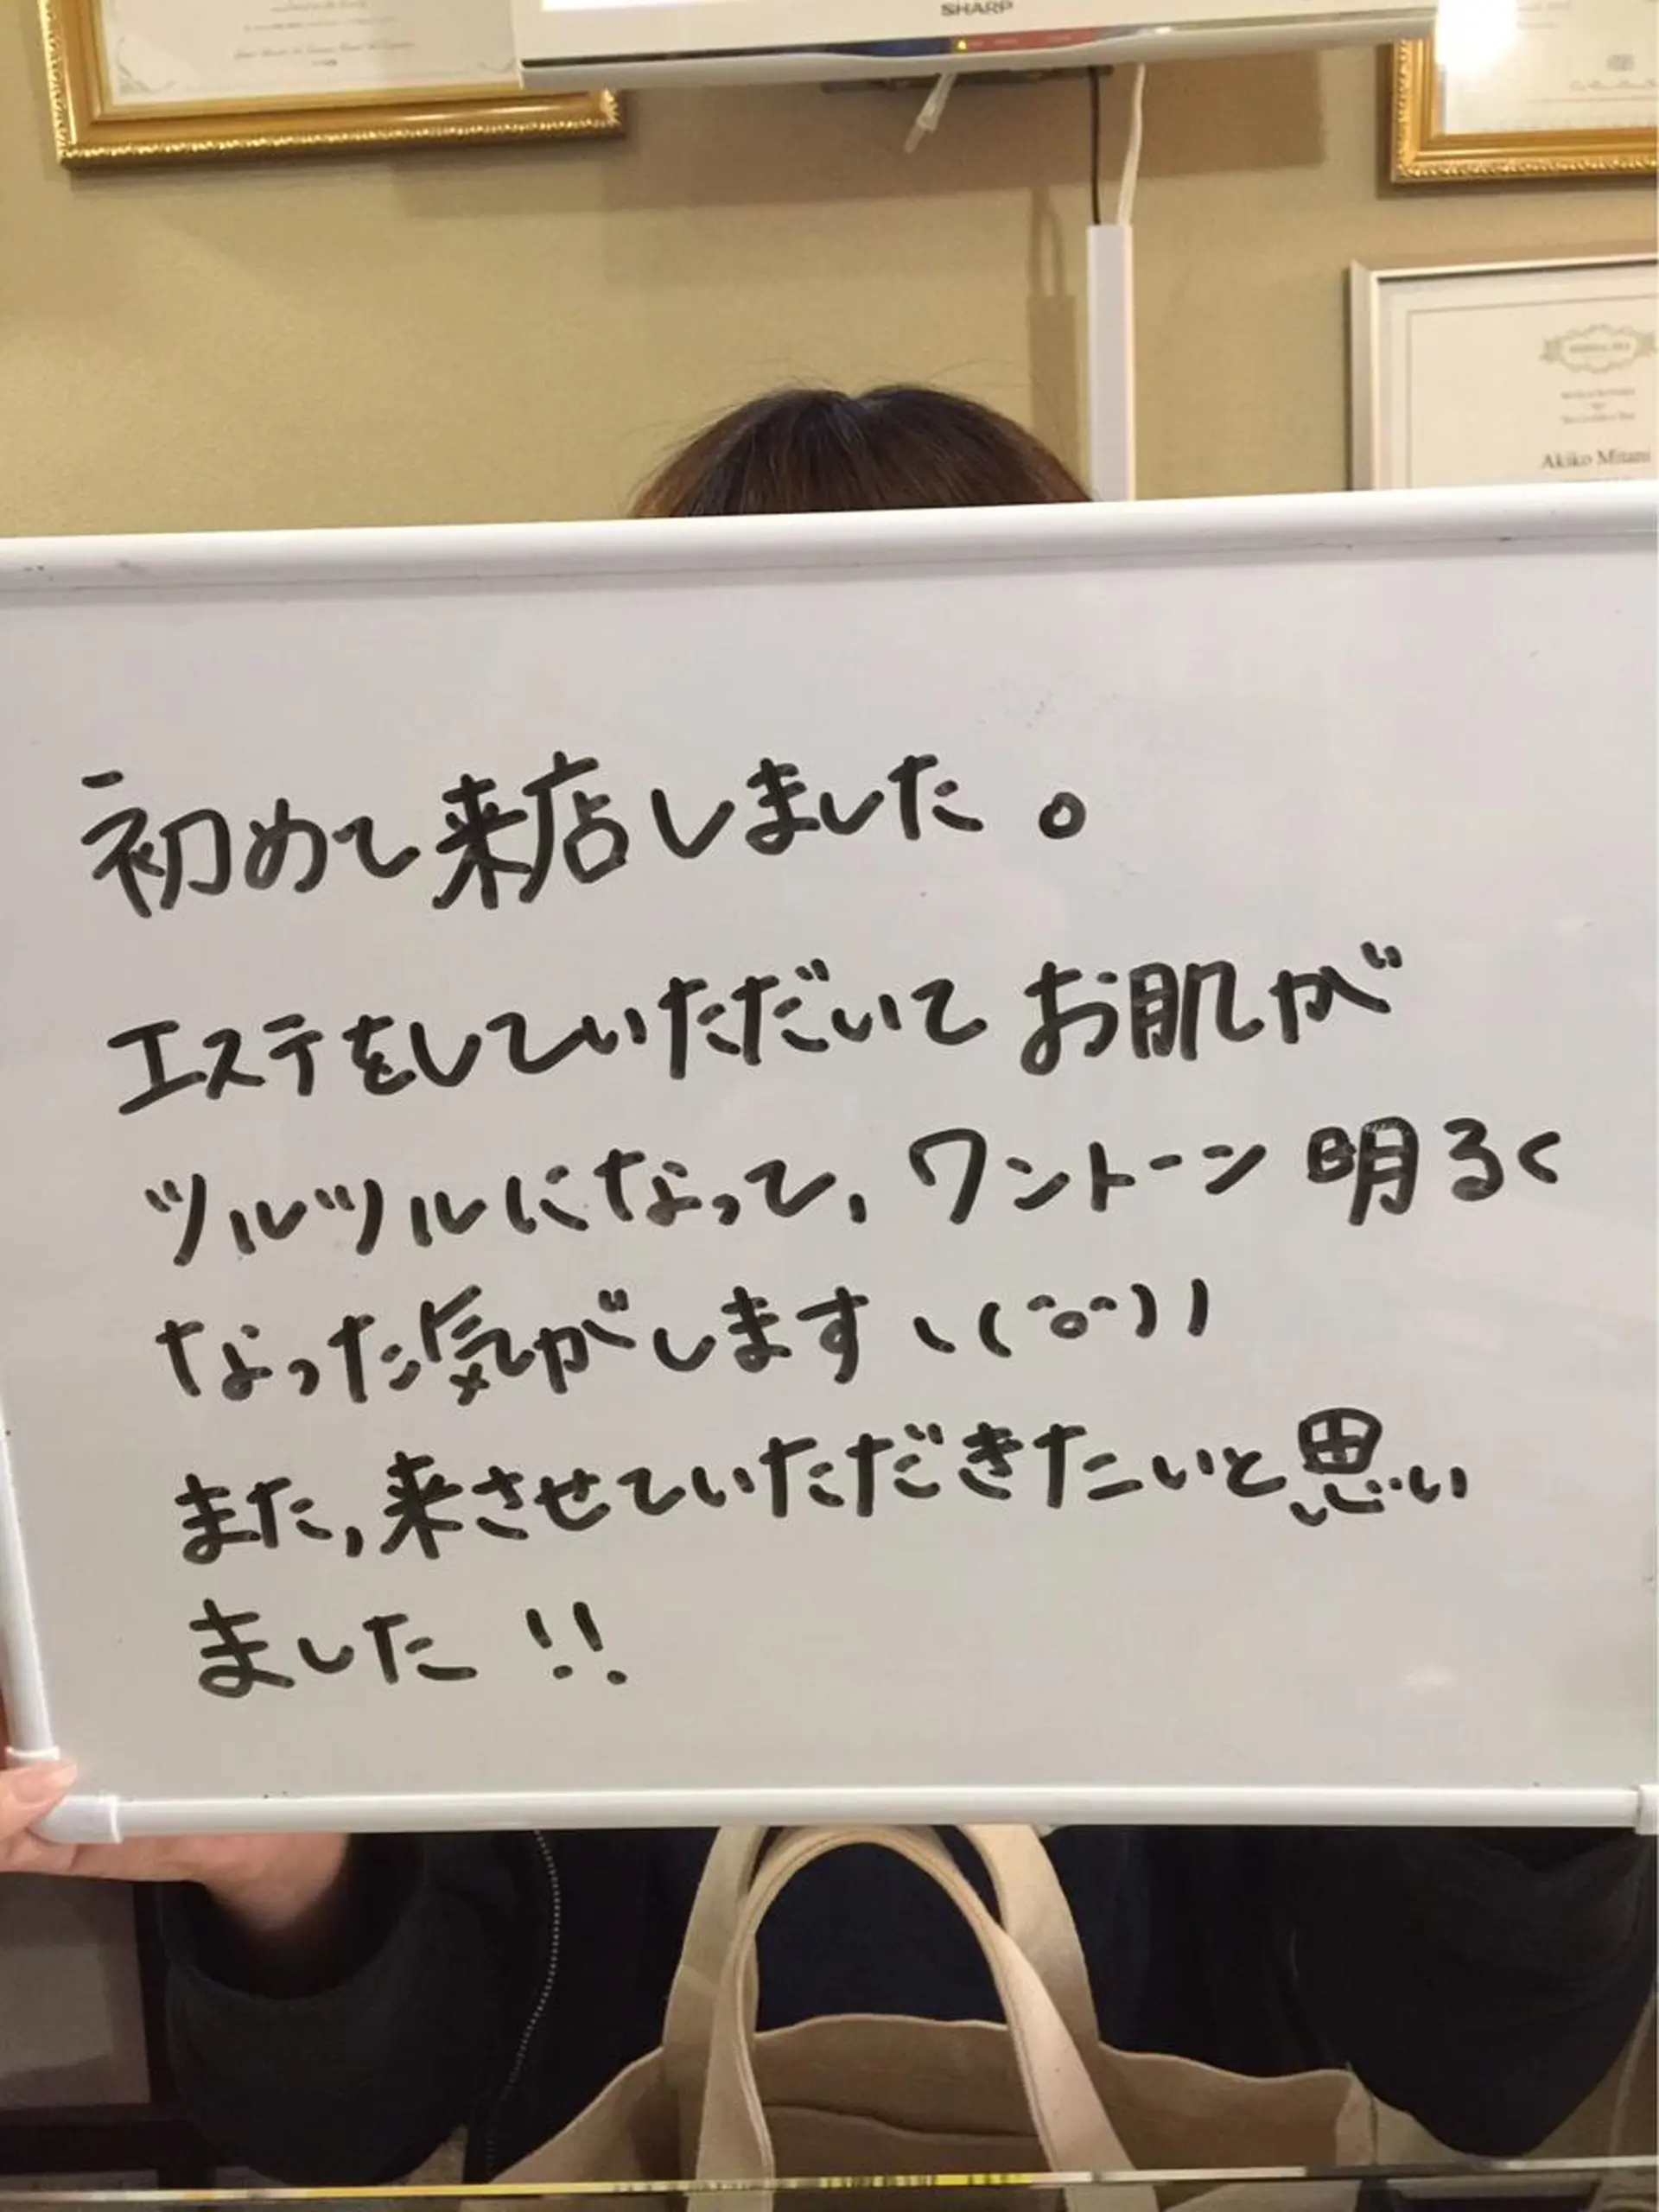 SHARP
Akiko Mitani
初めて来店しました。
エステをしていただいてお肌が
ツルツルになって、ワントーン明るく
なった気がします、(^o^))
また、来させていただきたいと思い
ました!!